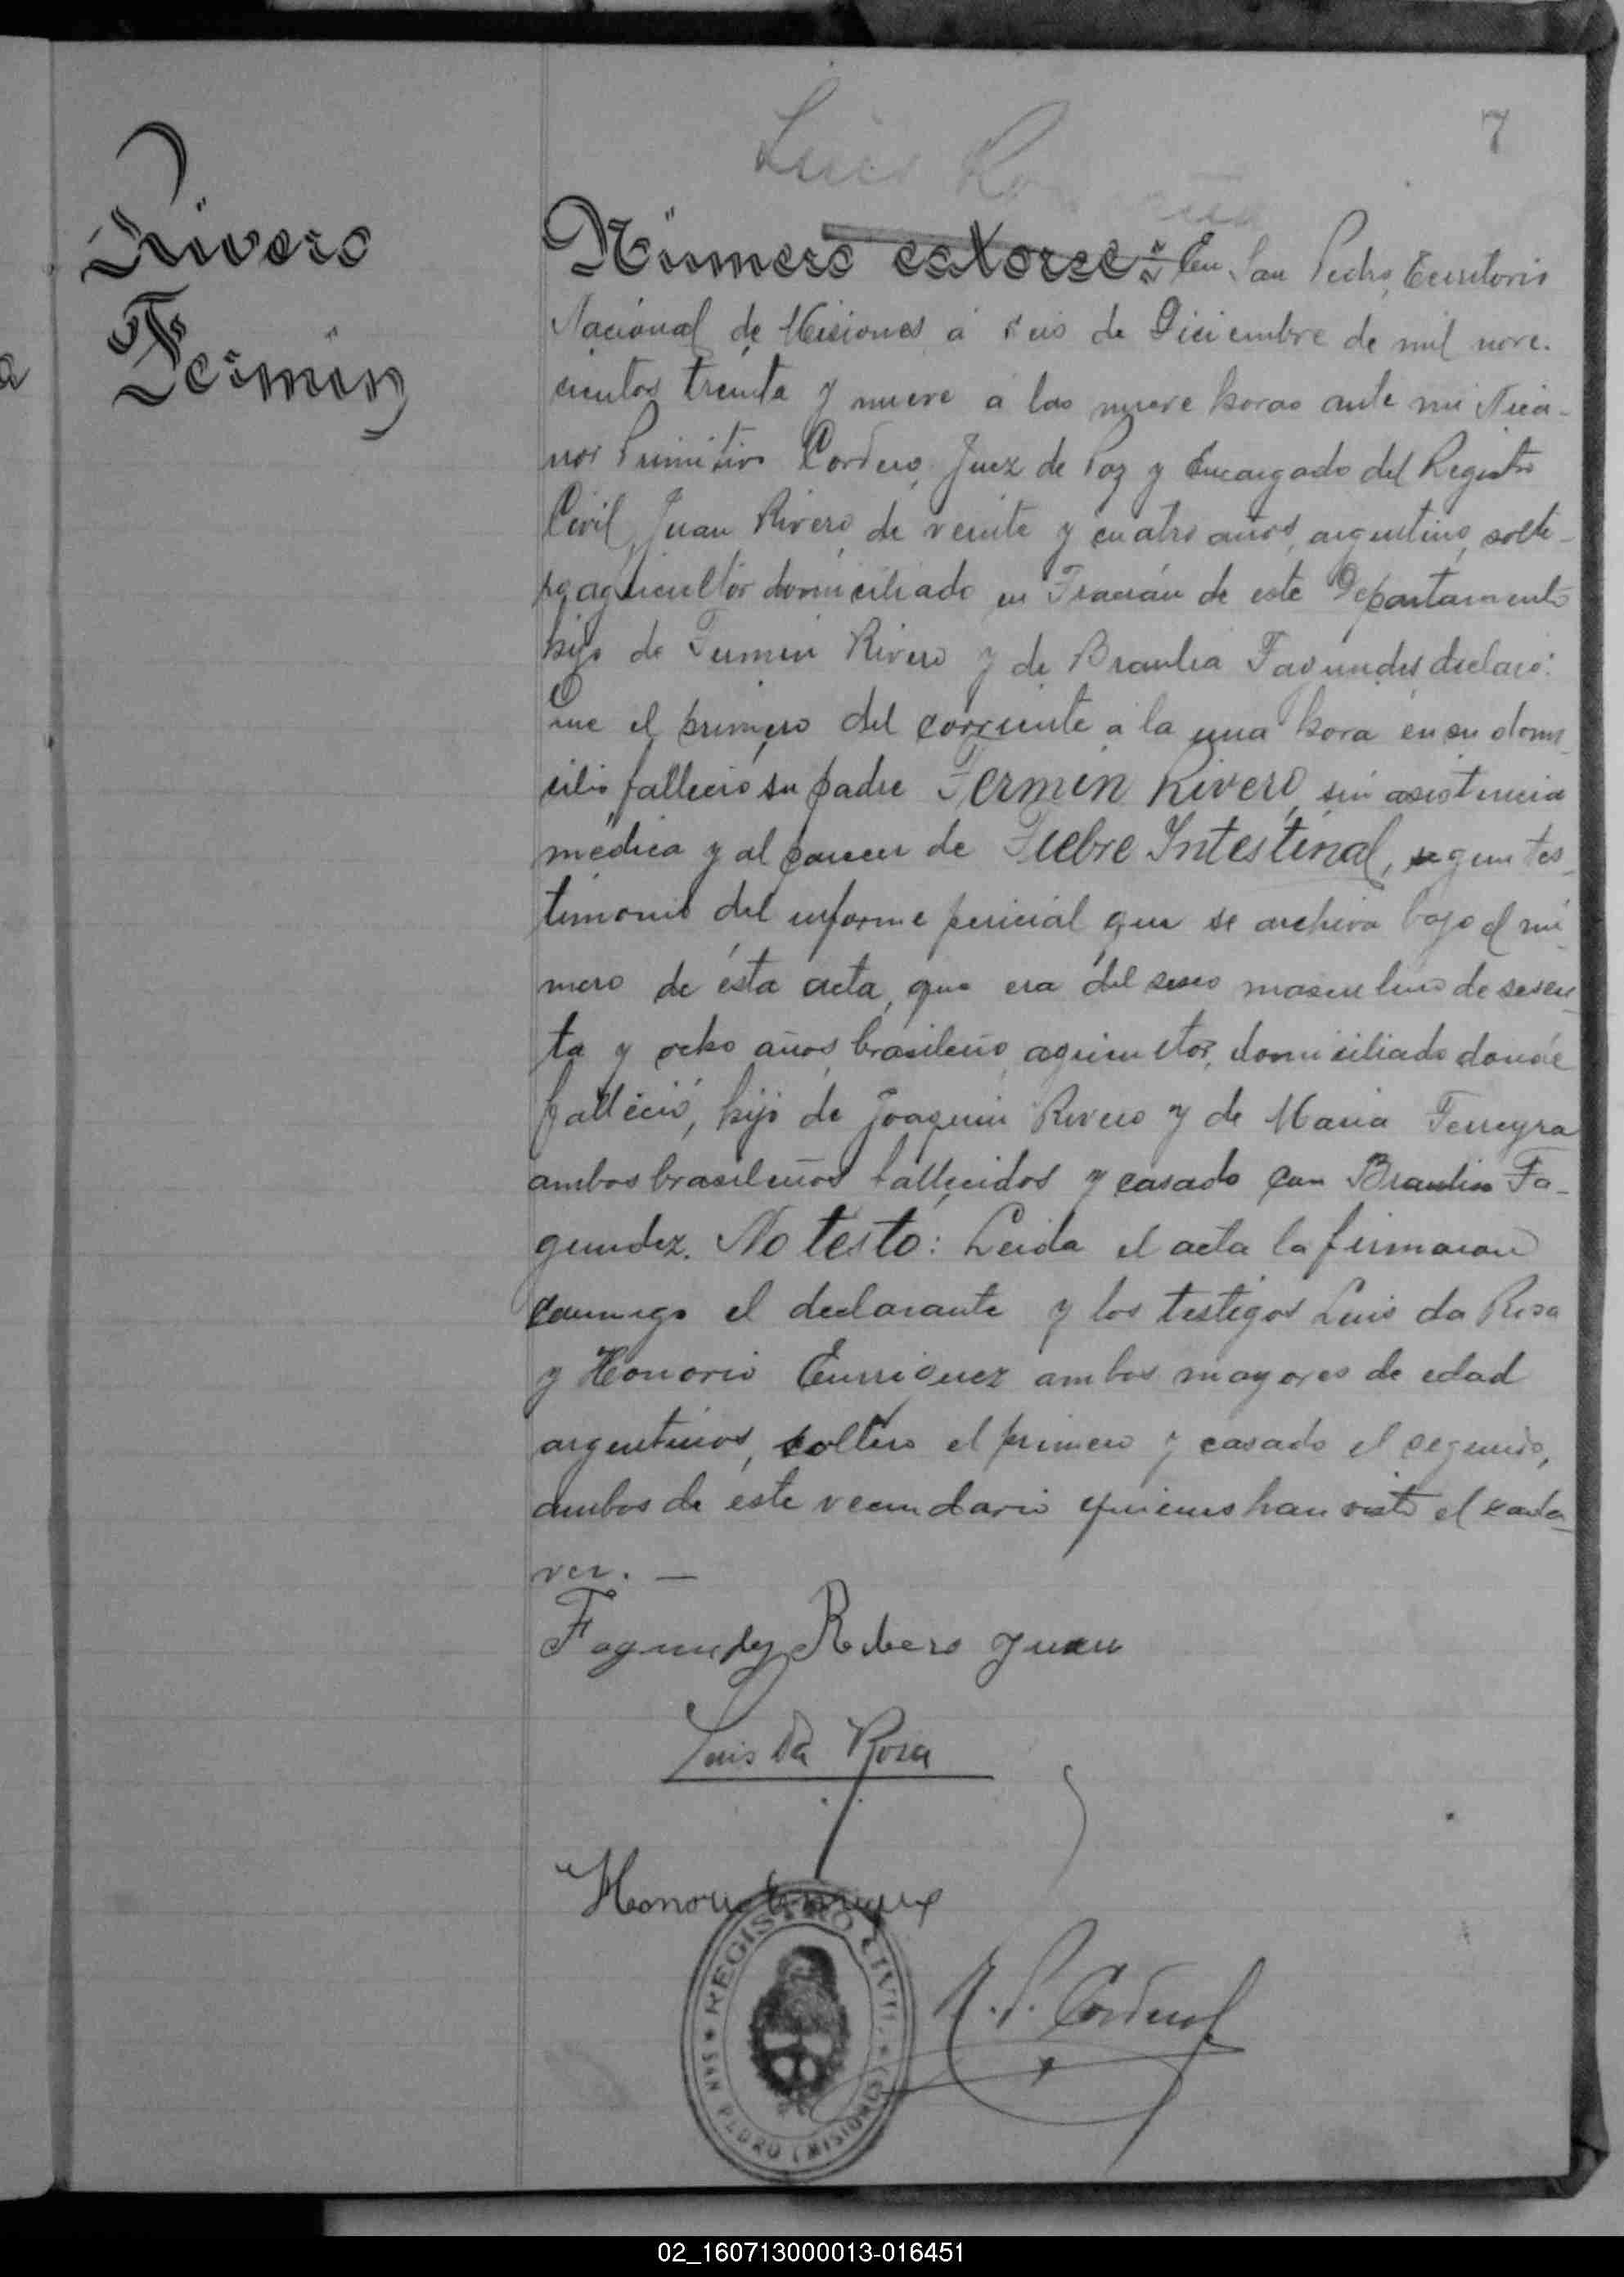 7
Luis
Rivero
Fermin
Número catorce: En San Pedro, Territorio
Nacional de Misiones a seis de Diciembre de mil nove-
cientos treinta y nueve a las nueve horas ante mi Nica-
nor Primitivo Cordero, Juez de Paz y Encargado del Registro
Civil, Juan Rivero, de veinte y cuatro años, argentino, solte-
ro, agricultor domiciliado en Fracrán de este Departamento
hijo de Fermin Rivero y de Braulia Fagundes declaró:
Que el primero del corriente a la una hora en su domi-
cilio falleció su padre Fermin Rivero, sin asistencia
médica y al parecer de Fiebre Intestinal, segun tes-
timonio del informe pericial que se archiva bajo el nú-
mero de ésta acta, que era del sexo masculino de sesen-
ta y ocho años, brasileño, agricultor, domiciliado donde
falleció, hijo de Joaquin Rivero y de Maria Ferreyra
ambos brasileños fallecidos y casado con Braulia Fa-
gundez. No testó: Leida el acta la firmaron
conmigo el declarante y los testigos Luis da Rosa
y Honorio Enrriquez ambos mayores de edad
argentinos, soltero el primero y casado el segundo,
ambos de este vecindario quienes han visto el cada-
ver. —
Fagundez Ribero Juan
Luis Da Rosa
Honorio Enriquez
N. P. Cordero
REGISTRO CIVIL
SAN PEDRO (MISIONES)
02_160713000013-016451